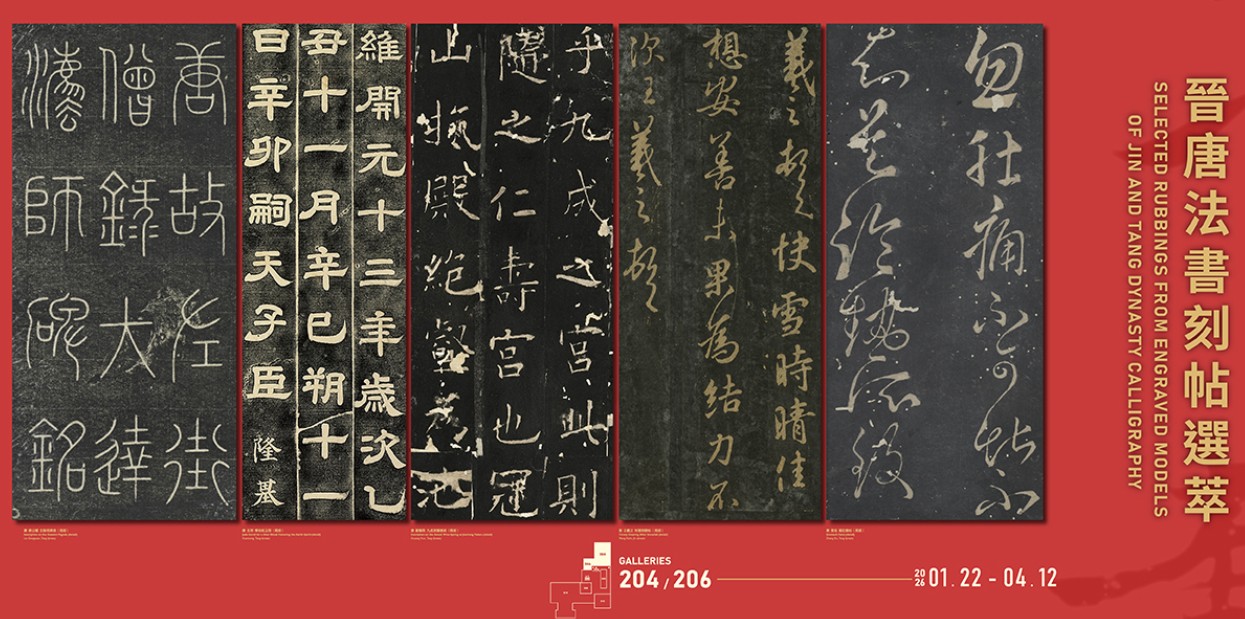 晉唐法書刻帖選萃
SELECTED RUBBINGS FROM ENGRAVED MODELS
OF JIN AND TANG DYNASTY CALLIGRAPHY
忽肚痛不可堪不
知是冷熱所致
羲之頓首快雪時晴佳
想安善未果為結力不
次王羲之頓首
乎九成之宮此則
隨之仁壽宮也冠
山抗殿絕壑為池
維開元十三年歲次乙
丑十一月辛巳朔十一
日辛卯嗣天子臣隆基
唐故左街
僧錄大達
灋師碑銘
GALLERIES
204 / 206
2026 01.22 - 04.12